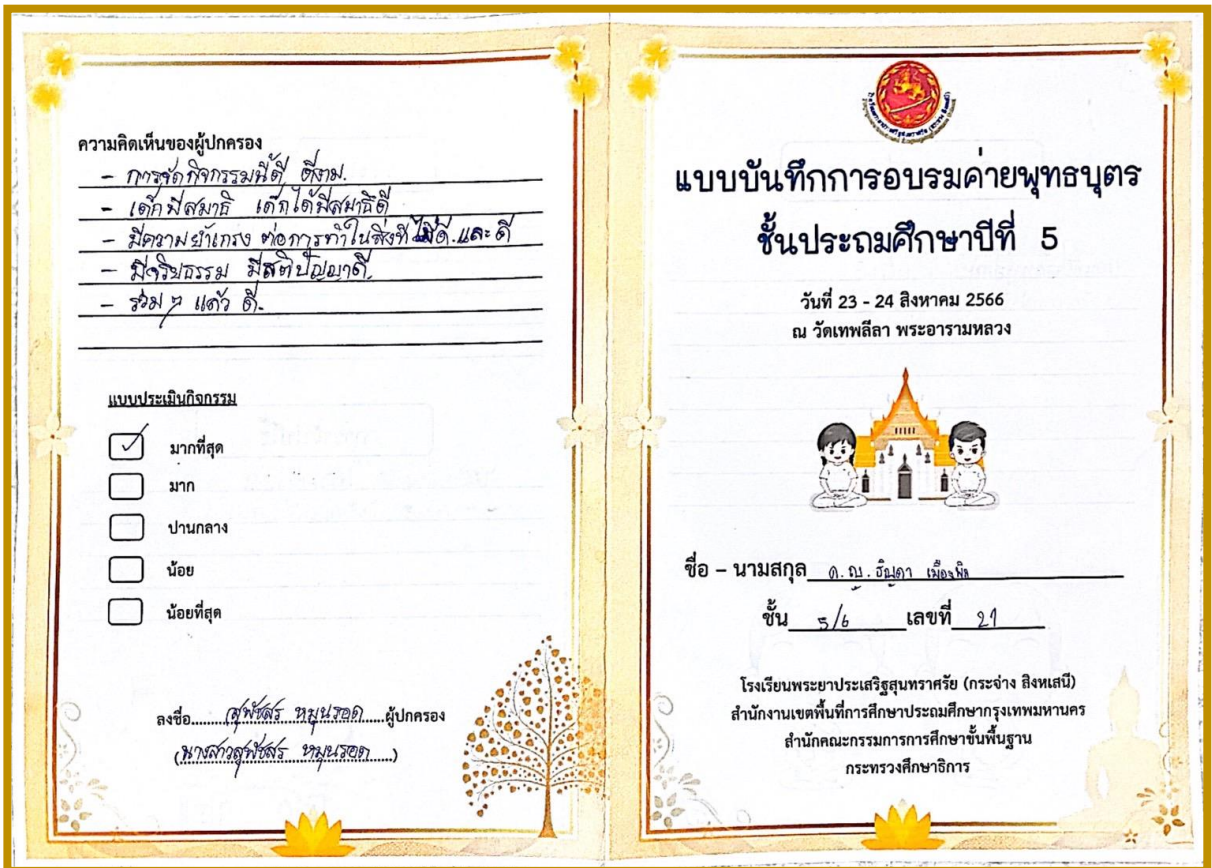 ความคิดเห็นของผู้ปกครอง
- การจัดกิจกรรมนี้ดี ดีงาม.
- เด็กมีสมาธิ เด็กได้มีสมาธิดี
- มีความยำเกรง ต่อการทำในสิ่งที่ไม่ดี.และ ดี
- มีจริยธรรม มีสติปัญญาดี.
- รวมๆ แล้ว ดี.
แบบประเมินกิจกรรม
มากที่สุด
มาก
ปานกลาง
น้อย
น้อยที่สุด
ลงชื่อ.....สุพัชสร หมุนรอด.....ผู้ปกครอง
(นางสาวสุพัชสร หมุนรอด.....)
แบบบันทึกการอบรมค่ายพุทธบุตร
ชั้นประถมศึกษาปีที่ 5
วันที่ 23 - 24 สิงหาคม 2566
ณ วัดเทพลีลา พระอารามหลวง
ชื่อ – นามสกุล ด.ญ.
ชั้น 5/6 เลขที่ 21
โรงเรียนพระยาประเสริฐสุนทราศรัย (กระจ่าง สิงหเสนี)
สำนักงานเขตพื้นที่การศึกษาประถมศึกษากรุงเทพมหานคร
สำนักคณะกรรมการการศึกษาขั้นพื้นฐาน
กระทรวงศึกษาธิการ